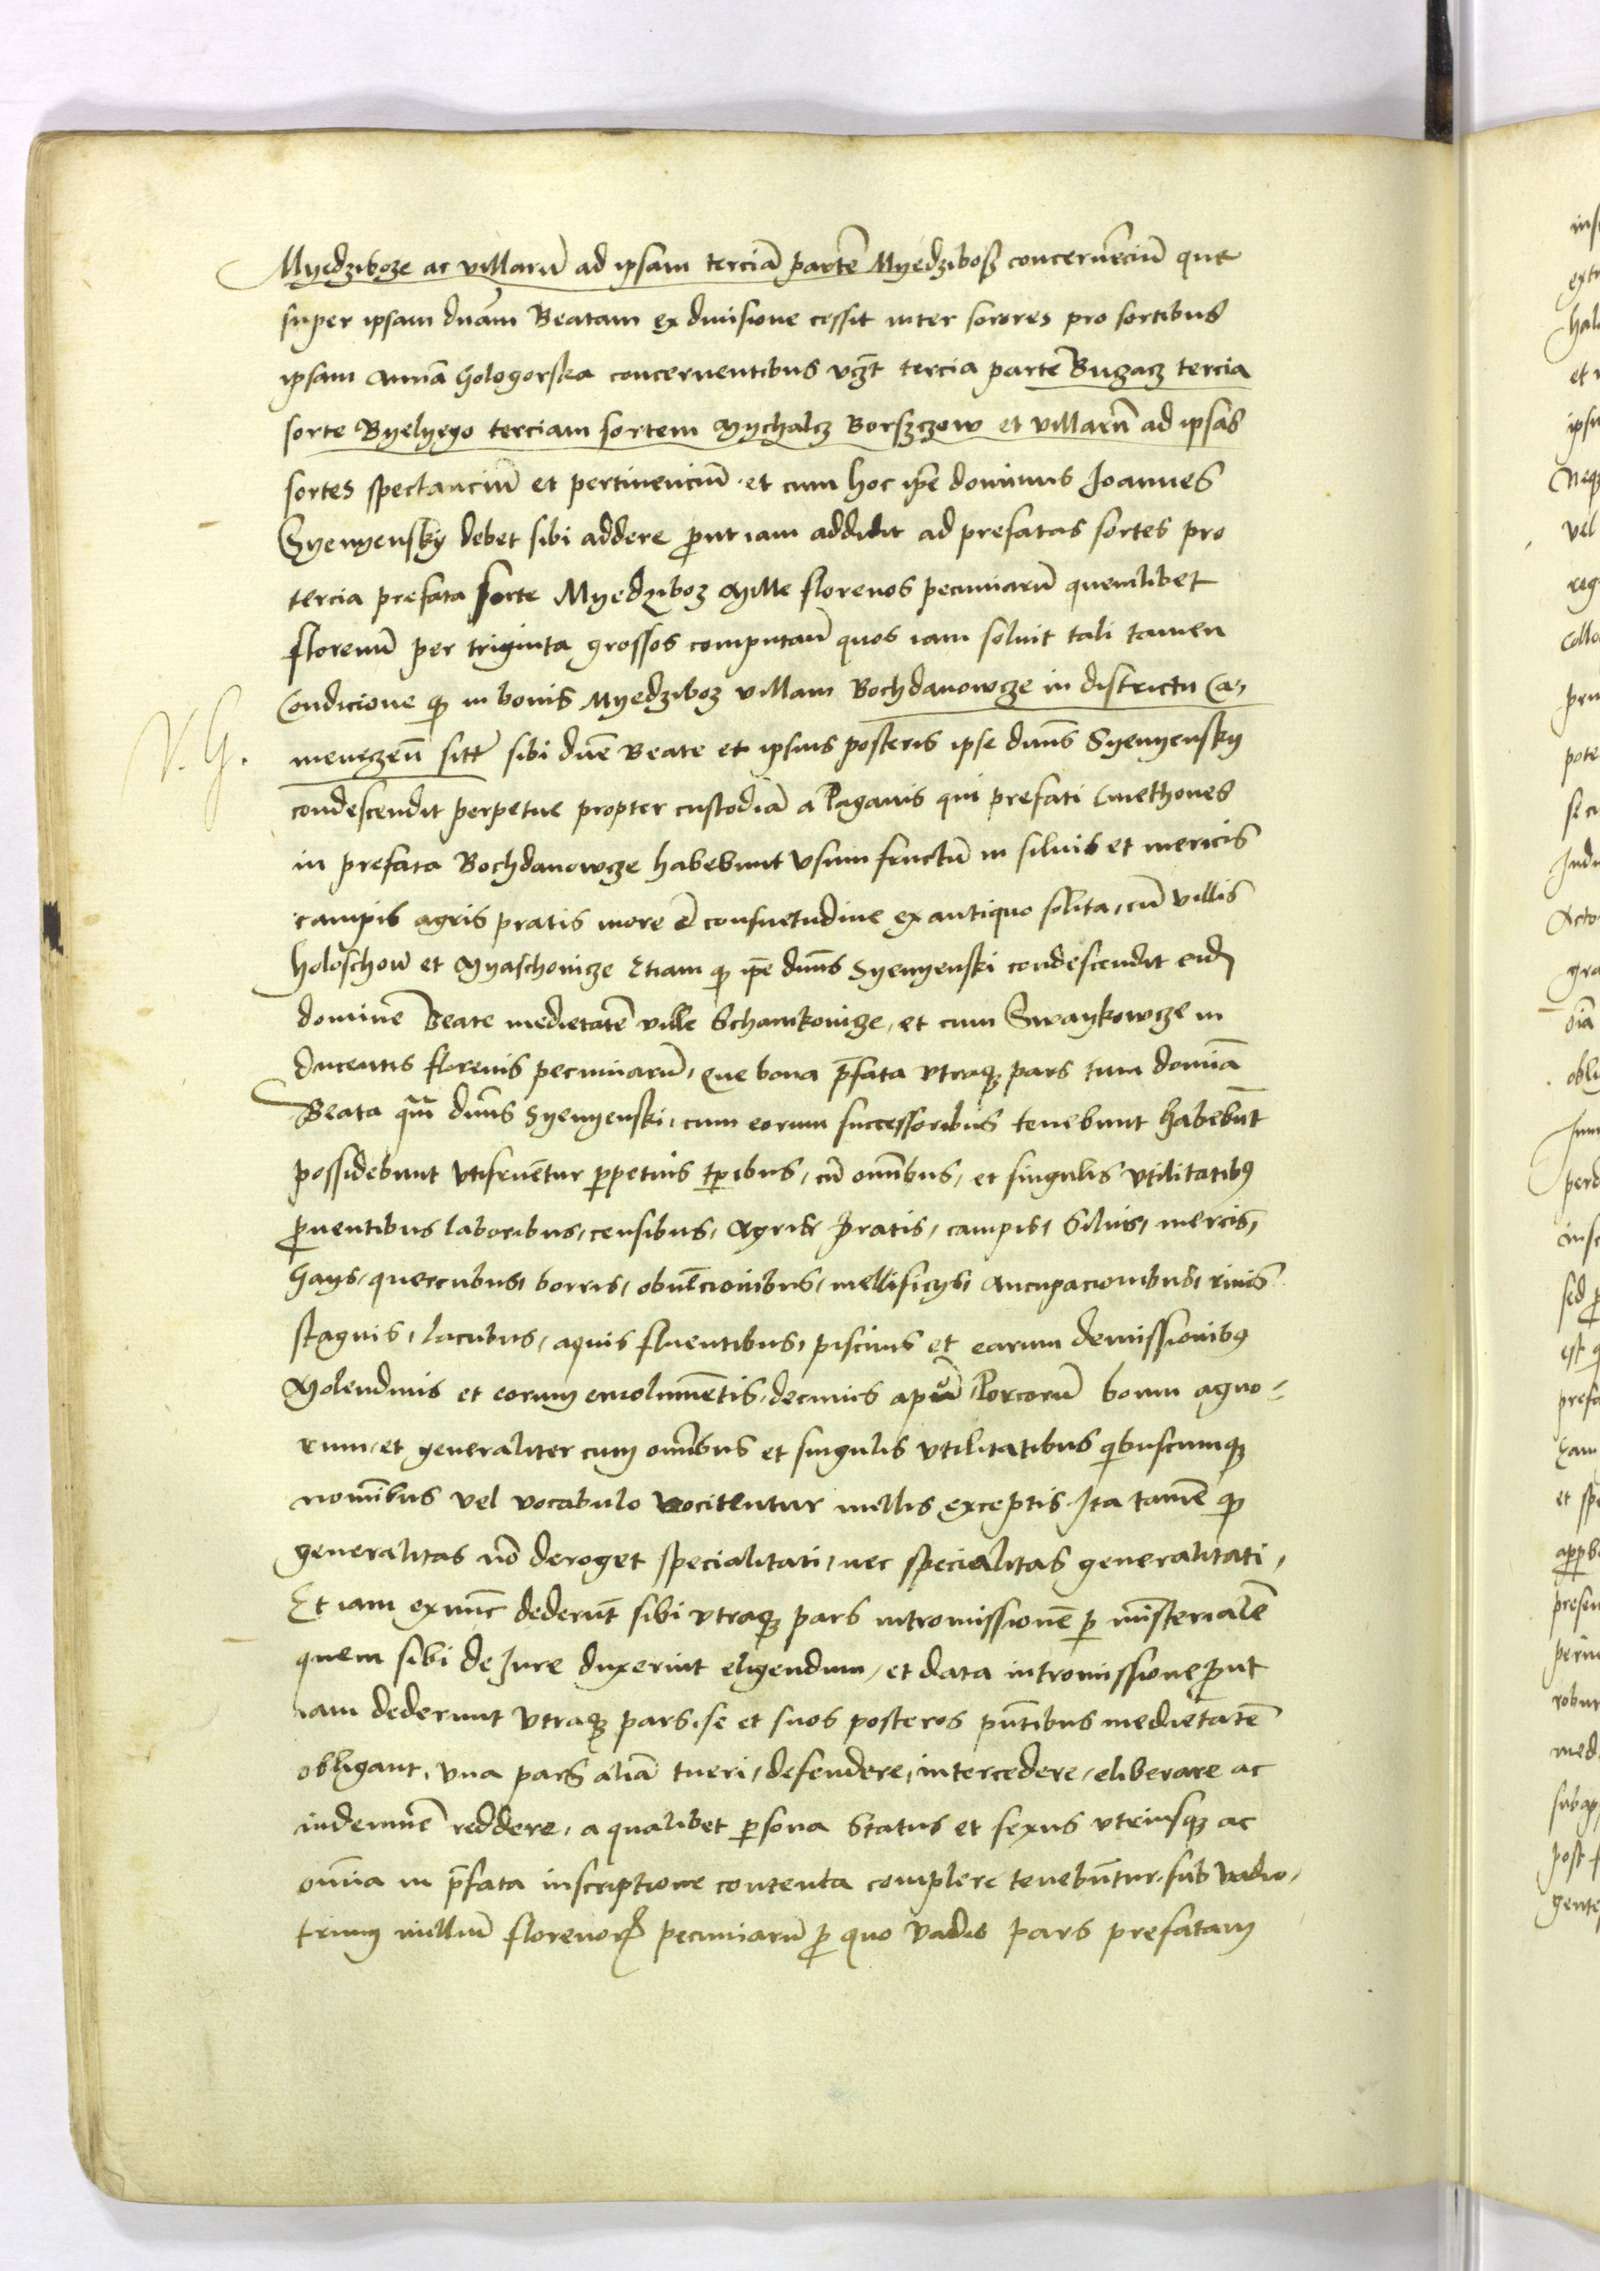 Myedziboze ac villarũ ad ipsam terciã partẽ Myedzibosz concernẽciũ que
super ipsam dnãm Beatam ex diuisione cessit inter sorores pro sortibus
ipsam Annã hologorska concernentibus vcz̃t tercia partẽ Bugacz tercia
sorte Byelyego terciam sortem Mychalcz Borszczow et villarũ ad ipsas
sortes spectanciũ et pertinenciũ et cum hoc ip̃e dominus Joannes
Syenyensky debet sibi addere ꝓut iam addidit ad prefatas sortes pro
tercia prefata sorte Myedziboz Mille florenos pecuniarũ quemlibet
florenũ per triginta grossos computan̄ quos iam soluit tali tamen
Condicione ꝙ in bonis Myedziboz villam Bochdanowcze in districtu Ca-
V. G.
meneczeñ sitã sibi dn̄e Beate et ipsius posteris ipse dnus Syenyensky
condescendit perpetue propter custodiã a Paganis qui prefati Cmethones
in prefata Bochdanowcze habebunt vsum fructũ in siluis et mericis
campis agris pratis more et consuetudine ex antiquo solita, cũ villis
holoschow et Myaschowicze Etiam ꝙ ip̃e dnus Syenyenski condescendit eidẽ
domine Beate medietatẽ ville Schamkowicze, et cum Swaykowcze in
ducentis florenis pecuniarũ, que bona p̃fata vtraqꝫ pars tum dominã
Beata qm̃ dnus Syenyenski, cum eorum successoribus tenebunt habebũt
possidebunt vtifruẽtur ꝑpetuis tꝑibus, cũ om̃ibus, et singulis vtilitatibꝰ
ꝓuentibus laboribus, censibus, Agris Pratis, campis, Siluis, mericis,
Gays, quercubus, borris, obuẽcionibus, mellificijs, Aucupacionibus, riuis
stagnis, lacubus, aquis fluentibus, piscinis et earum demissionibꝰ
Molendinis et eorum emolumẽtis, decimis apũ Porcorũ boum agno-
rum, et generaliter cum om̃ibus et singulis vtilitatibus q̃buscumqꝫ
nomĩbus vel vocabulo vocitentur nullis exceptis Ita tamẽ ꝙ
generalitas nõ deroget specialitati, nec specialitas generalitati,
Et iam exnũc dederũt sibi vtraqꝫ pars intromissionẽ ꝑ mĩsterialẽ
quem sibi de Jure duxerint eligendum, et data intromissione ꝓut
iam dederunt vtraqꝫ pars, se et suos posteros pñtibus medietatẽ
obligant, vna pars aliã tueri, defendere, intercedere, eliberare ac
indemnẽ reddere, a qualibet ꝑsona Status et sexus vtriusqꝫ ac
om̃ia in p̃fata inscriptione contenta complere tenebũtur, sub vadio,
trium milliũ florenoꝝ pecuniarũ ꝓ quo vadio pars prefatam